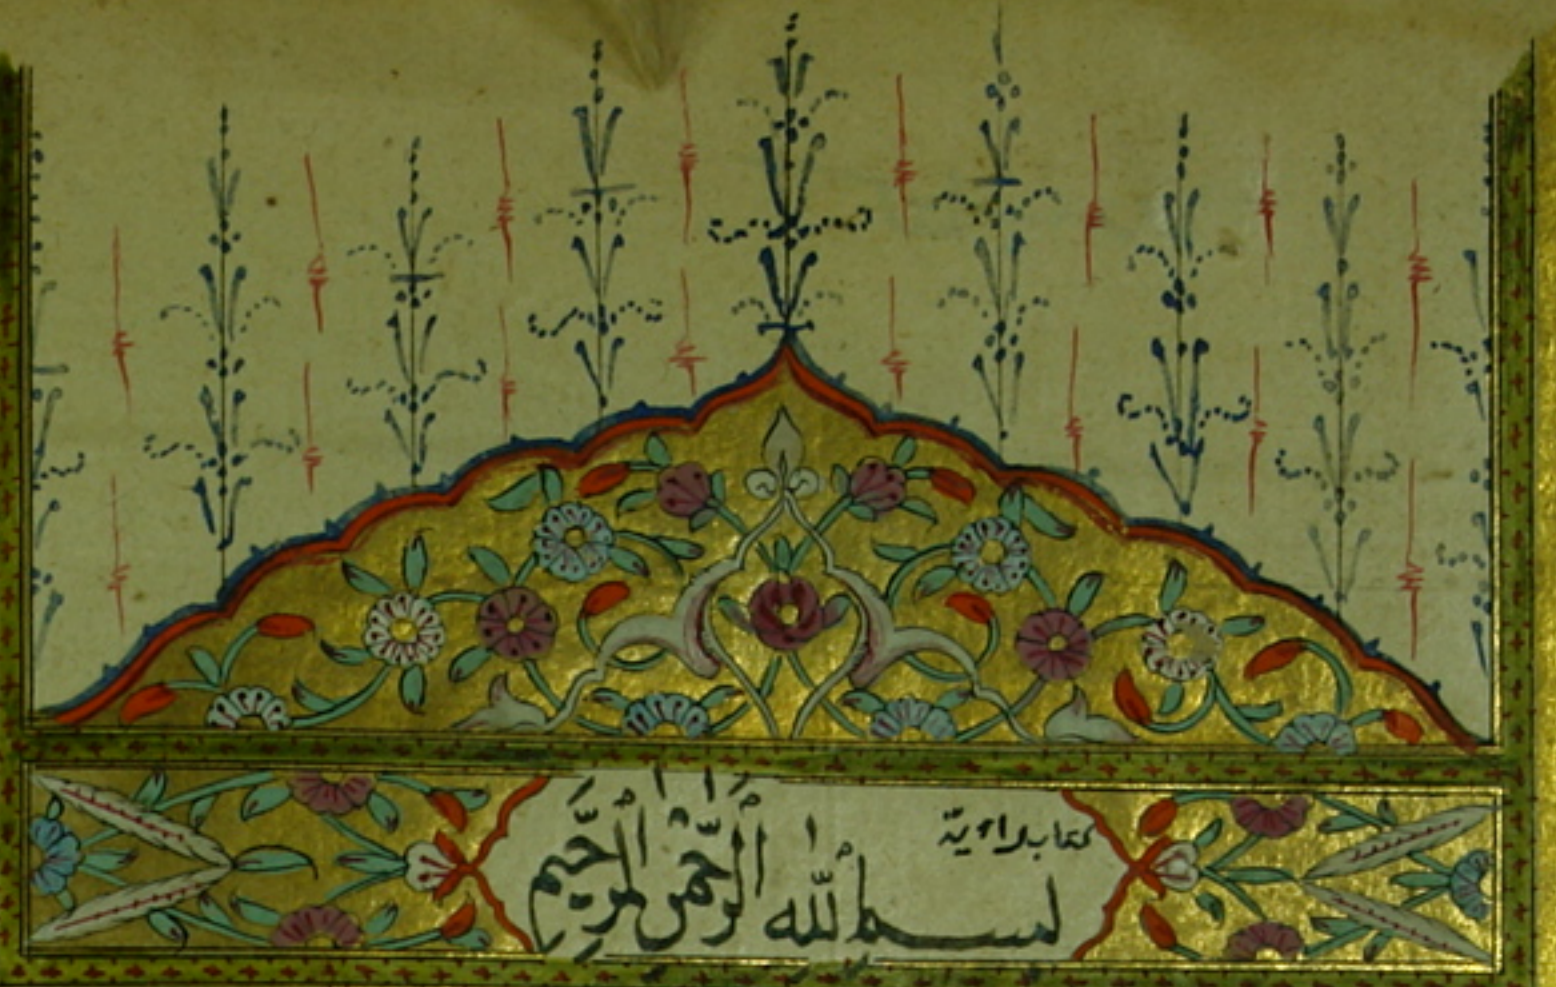 كتاب لاادوية
بسم الله الرحمن الرحيم